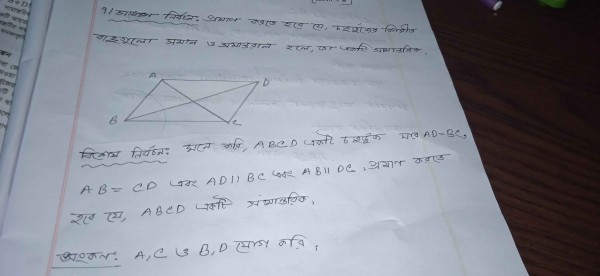 ৭। সাধারণ নির্বচন: প্রমাণ করতে হবে যে, চতুর্ভুজের বিপরীত
বাহুগুলো সমান ও সমান্তরাল হলে, তা একটি সামান্তরিক।
A
D
B
C
বিশেষ নির্বচন: মনে করি, ABCD একটি চতুর্ভুজ যার AD=BC,
AB = CD এবং AD || BC এবং AB || DC, প্রমাণ করতে
হবে যে, ABCD একটি সামান্তরিক।
অংকন: A, C ও B, D যোগ করি,